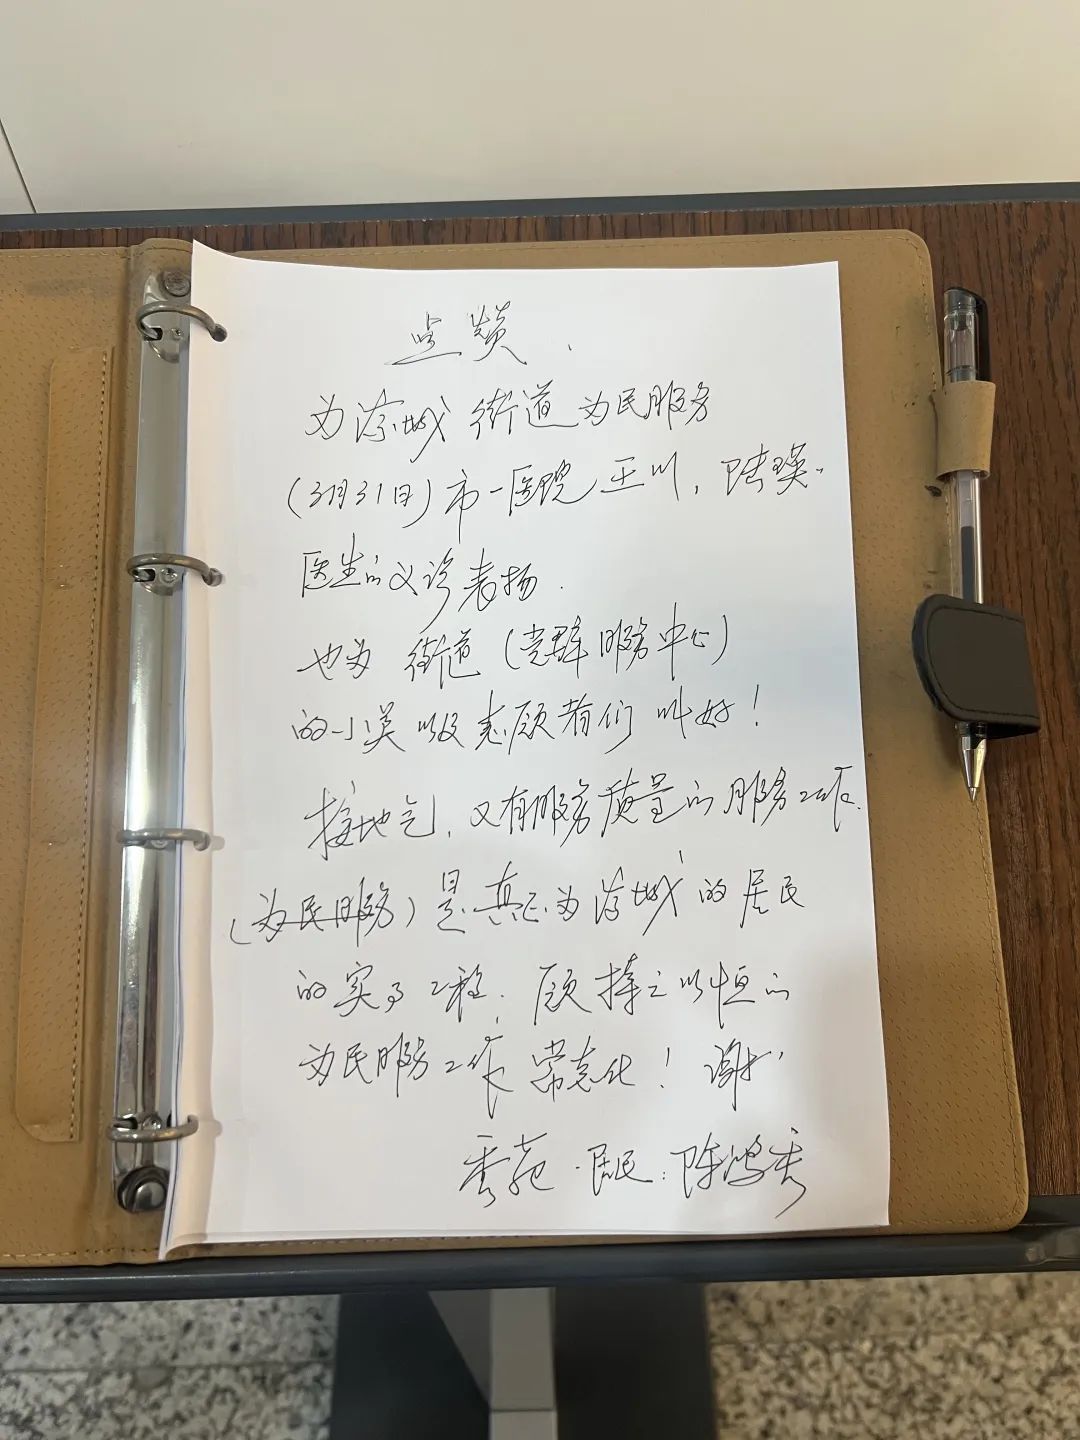 点赞
为凉城街道为民服务
(3月31日)市一医院王川、陆瑛
医生的义诊表扬.
也为 街道(党群服务中心)
的小吴以及志愿者们叫好!
接地气,又有服务质量的服务工作.
(为民服务)是真正为凉城的居民
的实事工程.愿持之以恒的
为民服务工作常态化!谢谢
秀苑·居民:陈鸿秀